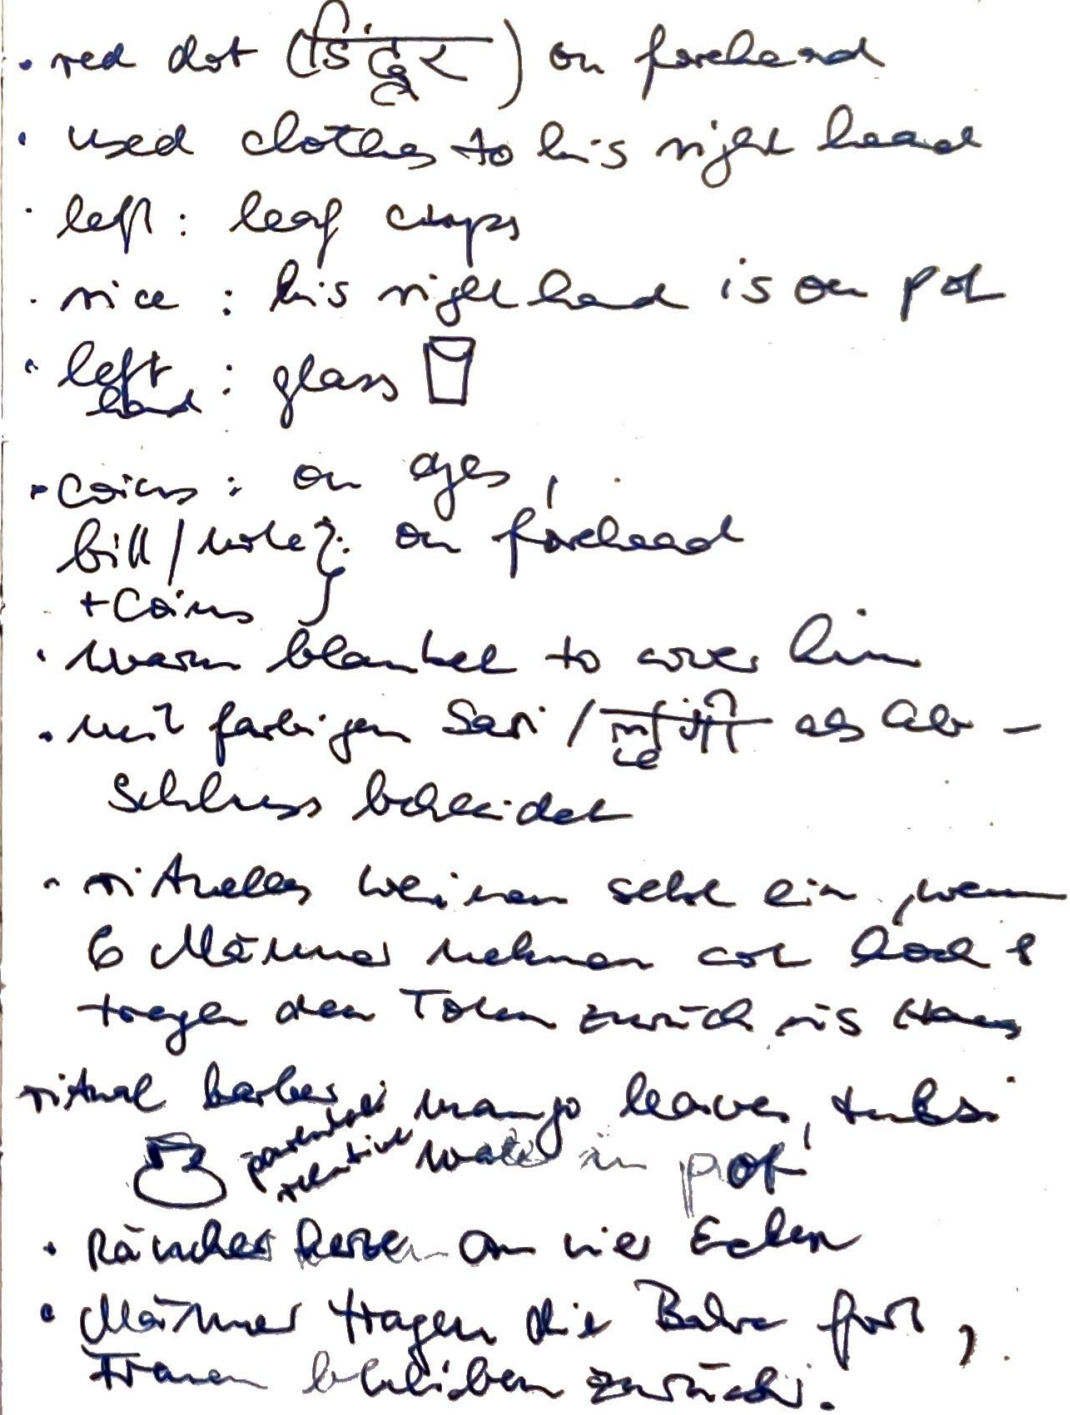 · red dot (सिंदूर) on forehead
· used clothes to his right hand
· left : leaf cups
· rice : his right hand is on pot
· left : glass
hand
· coins : on eyes,
bill/note }: on forehead
+ coins
· warm blanket to cover him
· mit farbigen Sari / als Ab-
schluss bekleidet
· rituelles weinen setzt ein, wenn
6 Männer nehmen cot hoch &
tragen den Toten zurück ins Haus
ritual barber mango leaves, tulsi
parental water in pot
relative
· Räucherkerzen an vier Ecken
· Männer tragen die Bahre fort,
Frauen bleiben zurück.